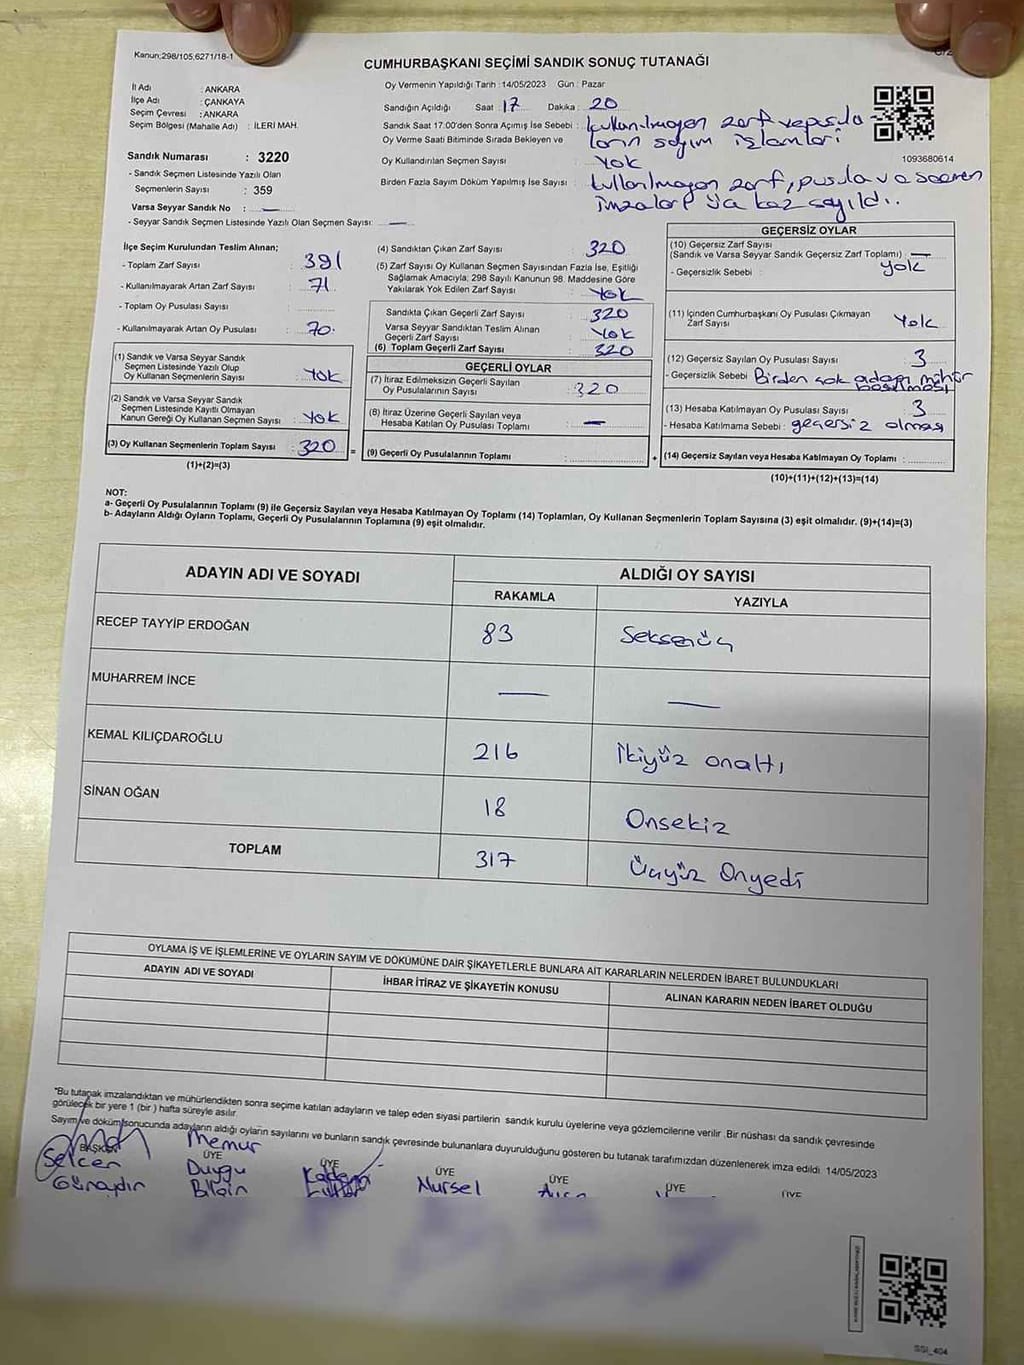 Kanun:298/105,6271/18-1
CUMHURBAŞKANI SEÇİMİ SANDIK SONUÇ TUTANAĞI
İl Adı : ANKARA
İlçe Adı : ÇANKAYA
Seçim Çevresi : ANKARA
Seçim Bölgesi (Mahalle Adı) : İLERİ MAH.
Sandık Numarası : 3220
- Sandık Seçmen Listesinde Yazılı Olan
Seçmenlerin Sayısı : 359
Varsa Seyyar Sandık No : —
- Seyyar Sandık Seçmen Listesinde Yazılı Olan Seçmen Sayısı: —
Oy Vermenin Yapıldığı Tarih : 14/05/2023 Gün : Pazar
Sandığın Açıldığı Saat : 17 Dakika : 20
Sandık Saat 17:00'den Sonra Açımış İse Sebebi : kullanılmayan zarf ve pusula
Oy Verme Saati Bitiminde Sırada Bekleyen ve ların sayım işlemleri
Oy Kullandırılan Seçmen Sayısı : Yok
Birden Fazla Sayım Döküm Yapılmış İse Sayısı : kullanılmayan zarf, pusula ve seçmen
sayıldı..
1093680614
İlçe Seçim Kurulundan Teslim Alınan;
- Toplam Zarf Sayısı : 391
- Kullanılmayarak Artan Zarf Sayısı : 71
- Toplam Oy Pusulası Sayısı :
- Kullanılmayarak Artan Oy Pusulası : 70.
(1) Sandık ve Varsa Seyyar Sandık
Seçmen Listesinde Yazılı Olup
Oy Kullanan Seçmenlerin Sayısı : Yok
(2) Sandık ve Varsa Seyyar Sandık
Seçmen Listesinde Kayıtlı Olmayan
Kanun Gereği Oy Kullanan Seçmen Sayısı : Yok
(3) Oy Kullanan Seçmenlerin Toplam Sayısı : 320
(1)+(2)=(3)
(4) Sandıktan Çıkan Zarf Sayısı : 320
(5) Zarf Sayısı Oy Kullanan Seçmen Sayısından Fazla İse, Eşitliği
Sağlamak Amacıyla; 298 Sayılı Kanunun 98. Maddesine Göre
Yakılarak Yok Edilen Zarf Sayısı : Yok
Sandıkta Çıkan Geçerli Zarf Sayısı : 320
Varsa Seyyar Sandıktan Teslim Alınan
Geçerli Zarf Sayısı : Yok
(6) Toplam Geçerli Zarf Sayısı : 320
GEÇERLİ OYLAR
(7) İtiraz Edilmeksizin Geçerli Sayılan
Oy Pusulalarının Sayısı : 320
(8) İtiraz Üzerine Geçerli Sayılan veya
Hesaba Katılan Oy Pusulası Toplamı : —
= (9) Geçerli Oy Pusulalarının Toplamı :
GEÇERSİZ OYLAR
(10) Geçersiz Zarf Sayısı
(Sandık ve Varsa Seyyar Sandık Geçersiz Zarf Toplamı) : —
- Geçersizlik Sebebi : yok
(11) İçinden Cumhurbaşkanı Oy Pusulası Çıkmayan
Zarf Sayısı : Yok
(12) Geçersiz Sayılan Oy Pusulası Sayısı : 3
- Geçersizlik Sebebi : Birden çok adaya mühür
basılması
(13) Hesaba Katılmayan Oy Pusulası Sayısı : 3
- Hesaba Katılmama Sebebi : geçersiz olması
+ (14) Geçersiz Sayılan veya Hesaba Katılmayan Oy Toplamı :
(10)+(11)+(12)+(13)=(14)
NOT:
a- Geçerli Oy Pusulalarının Toplamı (9) ile Geçersiz Sayılan veya Hesaba Katılmayan Oy Toplamı (14) Toplamları, Oy Kullanan Seçmenlerin Toplam Sayısına (3) eşit olmalıdır. (9)+(14)=(3)
b- Adayların Aldığı Oyların Toplamı, Geçerli Oy Pusulalarının Toplamına (9) eşit olmalıdır.
ADAYIN ADI VE SOYADI ALDIĞI OY SAYISI
RAKAMLA YAZIYLA
RECEP TAYYİP ERDOĞAN 83 Seksenüç
MUHARREM İNCE — —
KEMAL KILIÇDAROĞLU 216 İkiyüz onaltı
SİNAN OĞAN 18 Onsekiz
TOPLAM 317 Üçyüz Onyedi
OYLAMA İŞ VE İŞLEMLERİNE VE OYLARIN SAYIM VE DÖKÜMÜNE DAİR ŞİKAYETLERLE BUNLARA AİT KARARLARIN NELERDEN İBARET BULUNDUKLARI
ADAYIN ADI VE SOYADI İHBAR İTİRAZ VE ŞİKAYETİN KONUSU ALINAN KARARIN NEDEN İBARET OLDUĞU
*Bu tutanak imzalandıktan ve mühürlendikten sonra seçime katılan adayların ve talep eden siyasi partilerin sandık kurulu üyelerine veya gözlemcilerine verilir. Bir nüshası da sandık çevresinde
görülecek bir yere 1 (bir ) hafta süreyle asılır.
Sayım ve döküm sonucunda adayların aldığı oyların sayılarını ve bunların sandık çevresinde bulunanlara duyurulduğunu gösteren bu tutanak tarafımızdan düzenlenerek imza edildi. 14/05/2023
Memur
BAŞKAN ÜYE ÜYE ÜYE ÜYE ÜYE ÜYE
Selcen Duygu Nursel
Günaydın Bilgin
SSI_404